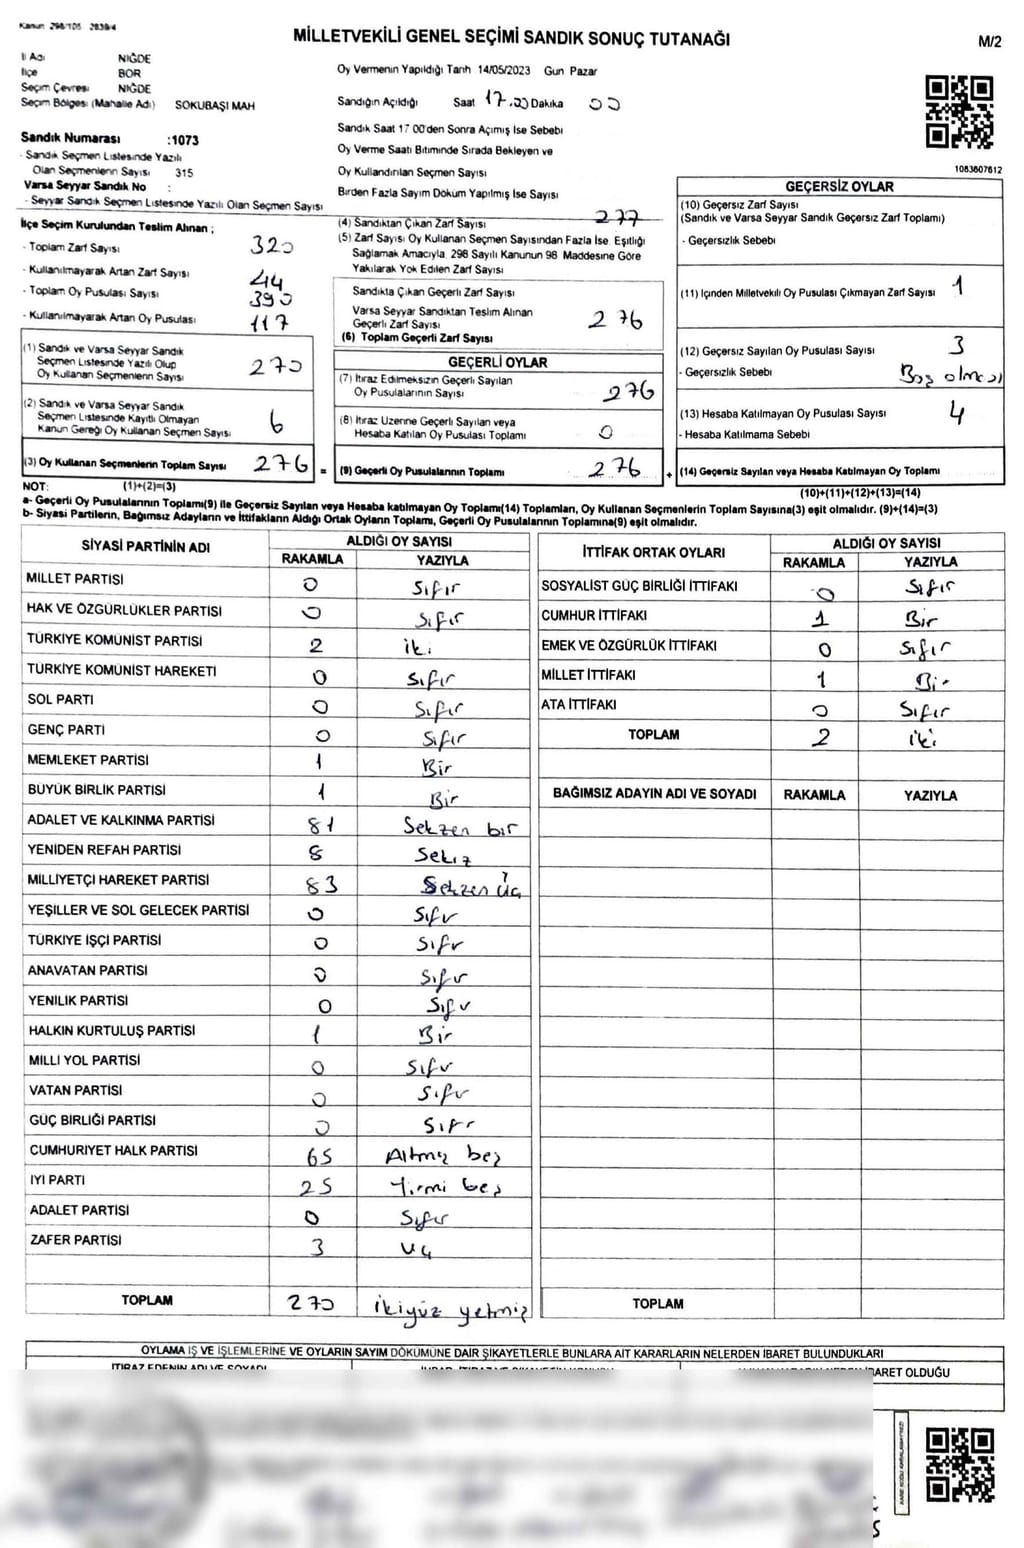 Kanun 298/105 2839/4
MİLLETVEKİLİ GENEL SEÇİMİ SANDIK SONUÇ TUTANAĞI
M/2
İl Adı : NİĞDE
İlçe BOR
Seçim Çevresi NİĞDE
Seçim Bölgesi (Mahalle Adı) SOKUBAŞI MAH
Oy Vermenin Yapıldığı Tarih 14/05/2023 Gun Pazar
Sandığın Açıldığı Saat 17.00 Dakika 00
Sandık Saat 17 00'den Sonra Açımış İse Sebebi
Oy Verme Saati Bitiminde Sırada Bekleyen ve
Oy Kullandırılan Seçmen Sayısı
Birden Fazla Sayım Dokum Yapılmış İse Sayısı
1083607612
Sandık Numarası :1073
- Sandık Seçmen Listesinde Yazılı
Olan Seçmenlerin Sayısı 315
Varsa Seyyar Sandık No :
- Seyyar Sandık Seçmen Listesinde Yazılı Olan Seçmen Sayısı
İlçe Seçim Kurulundan Teslim Alınan ;
- Toplam Zarf Sayısı 320
- Kullanılmayarak Artan Zarf Sayısı 44
- Toplam Oy Pusulası Sayısı 390
- Kullanılmayarak Artan Oy Pusulası 117
(1) Sandık ve Varsa Seyyar Sandık
Seçmen Listesinde Yazılı Olup
Oy Kullanan Seçmenlerin Sayısı 270
(2) Sandık ve Varsa Seyyar Sandık
Seçmen Listesinde Kayıtlı Olmayan
Kanun Gereği Oy Kullanan Seçmen Sayısı 6
(3) Oy Kullanan Seçmenlerin Toplam Sayısı 276 =
(4) Sandıktan Çıkan Zarf Sayısı 277
(5) Zarf Sayısı Oy Kullanan Seçmen Sayısından Fazla İse, Eşitliği
Sağlamak Amacıyla, 298 Sayılı Kanunun 98 Maddesine Göre
Yakılarak Yok Edilen Zarf Sayısı
Sandıkta Çıkan Geçerli Zarf Sayısı
Varsa Seyyar Sandıktan Teslim Alınan
Geçerli Zarf Sayısı 276
(6) Toplam Geçerli Zarf Sayısı
GEÇERLİ OYLAR
(7) İtiraz Edilmeksizin Geçerli Sayılan
Oy Pusulalarının Sayısı 276
(8) İtiraz Üzerine Geçerli Sayılan veya
Hesaba Katılan Oy Pusulası Toplamı 0
(9) Geçerli Oy Pusulalarının Toplamı 276 +
GEÇERSİZ OYLAR
(10) Geçersiz Zarf Sayısı
(Sandık ve Varsa Seyyar Sandık Geçersiz Zarf Toplamı)
- Geçersizlik Sebebi
(11) İçinden Milletvekili Oy Pusulası Çıkmayan Zarf Sayısı 1
(12) Geçersiz Sayılan Oy Pusulası Sayısı 3
- Geçersizlik Sebebi Boş olması
(13) Hesaba Katılmayan Oy Pusulası Sayısı 4
- Hesaba Katılmama Sebebi
(14) Geçersiz Sayılan veya Hesaba Katılmayan Oy Toplamı
NOT: (1)+(2)=(3)
(10)+(11)+(12)+(13)=(14)
a- Geçerli Oy Pusulalarının Toplamı(9) ile Geçersiz Sayılan veya Hesaba katılmayan Oy Toplamı(14) Toplamları, Oy Kullanan Seçmenlerin Toplam Sayısına(3) eşit olmalıdır. (9)+(14)=(3)
b- Siyasi Partilerin, Bağımsız Adayların ve İttifakların Aldığı Ortak Oyların Toplamı, Geçerli Oy Pusulalarının Toplamına(9) eşit olmalıdır.
SİYASİ PARTİNİN ADI ALDIĞI OY SAYISI
RAKAMLA YAZIYLA
MİLLET PARTİSİ 0 Sıfır
HAK VE ÖZGÜRLÜKLER PARTİSİ 0 Sıfır
TÜRKİYE KOMÜNİST PARTİSİ 2 iki
TÜRKİYE KOMÜNİST HAREKETİ 0 Sıfır
SOL PARTİ 0 Sıfır
GENÇ PARTİ 0 Sıfır
MEMLEKET PARTİSİ 1 Bir
BÜYÜK BİRLİK PARTİSİ 1 Bir
ADALET VE KALKINMA PARTİSİ 81 Seksen bir
YENİDEN REFAH PARTİSİ 8 Sekız
MİLLİYETÇİ HAREKET PARTİSİ 83 Seksen üç
YEŞİLLER VE SOL GELECEK PARTİSİ 0 Sıfır
TÜRKİYE İŞÇİ PARTİSİ 0 Sıfır
ANAVATAN PARTİSİ 0 Sıfır
YENİLİK PARTİSİ 0 Sıfır
HALKIN KURTULUŞ PARTİSİ 1 Bir
MİLLİ YOL PARTİSİ 0 Sıfır
VATAN PARTİSİ 0 Sıfır
GÜÇ BİRLİĞİ PARTİSİ 0 Sıfır
CUMHURİYET HALK PARTİSİ 65 Altmış beş
İYİ PARTİ 25 Yirmi beş
ADALET PARTİSİ 0 Sıfır
ZAFER PARTİSİ 3 Uç
TOPLAM 270 ikiyüz yetmiş
İTTİFAK ORTAK OYLARI ALDIĞI OY SAYISI
RAKAMLA YAZIYLA
SOSYALİST GÜÇ BİRLİĞİ İTTİFAKI 0 Sıfır
CUMHUR İTTİFAKI 1 Bir
EMEK VE ÖZGÜRLÜK İTTİFAKI 0 Sıfır
MİLLET İTTİFAKI 1 Bir
ATA İTTİFAKI 0 Sıfır
TOPLAM 2 iki
BAĞIMSIZ ADAYIN ADI VE SOYADI RAKAMLA YAZIYLA
TOPLAM
OYLAMA İŞ VE İŞLEMLERİNE VE OYLARIN SAYIM DÖKÜMÜNE DAİR ŞİKAYETLERLE BUNLARA AİT KARARLARIN NELERDEN İBARET BULUNDUKLARI
İTİRAZ EDENİN ADI VE SOYADI
İBARET OLDUĞU